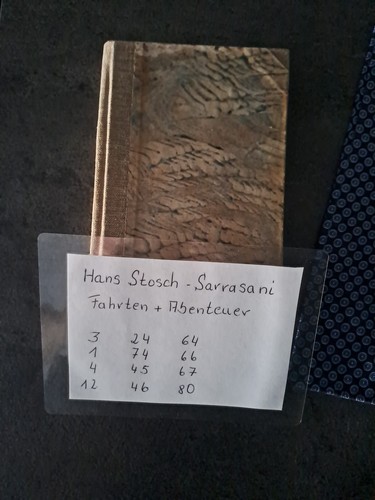 Hans Stosch - Sarrasani
Fahrten + Abenteuer
3 24 64
1 74 66
4 45 67
12 46 80